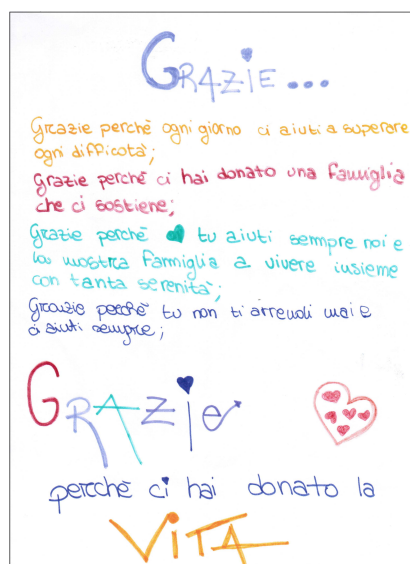 GRAZIE...
Grazie perchè ogni giorno ci aiuti a superare
ogni difficotà;
Grazie perchè ci hai donato una famiglia
che ci sostiene;
Grazie perchè tu aiuti sempre noi e
la nostra famiglia a vivere insieme
con tanta serenità;
Grazie perchè tu non ti arrendi mai e
ci aiuti sempre;
GRAZIE
perchè ci hai donato la
VITA